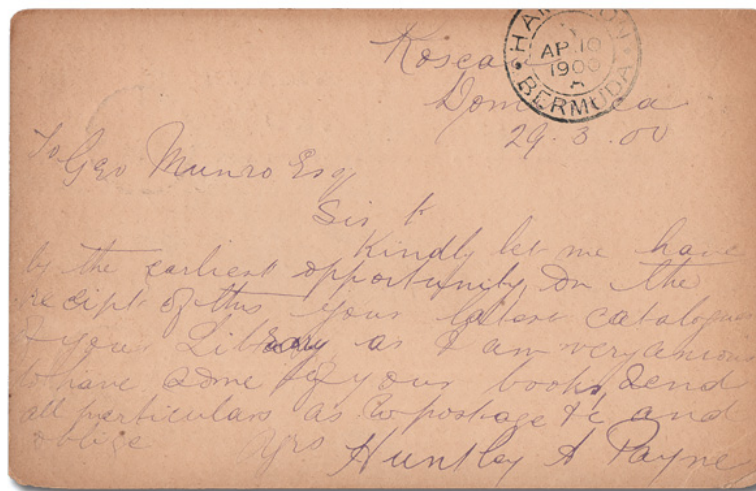 Roseau
Dominica
29.3.00
HAMILTON
AP 10
1900
BERMUDA
To Geo Munro Esq
Sir
Kindly let me have
by the earliest opportunity on the
recipt of this your latest catalogue
of your Library as I am very anxious
to have some of your books, Send
all particulars as to postage &c and
oblige Yrs Huntley A Payne